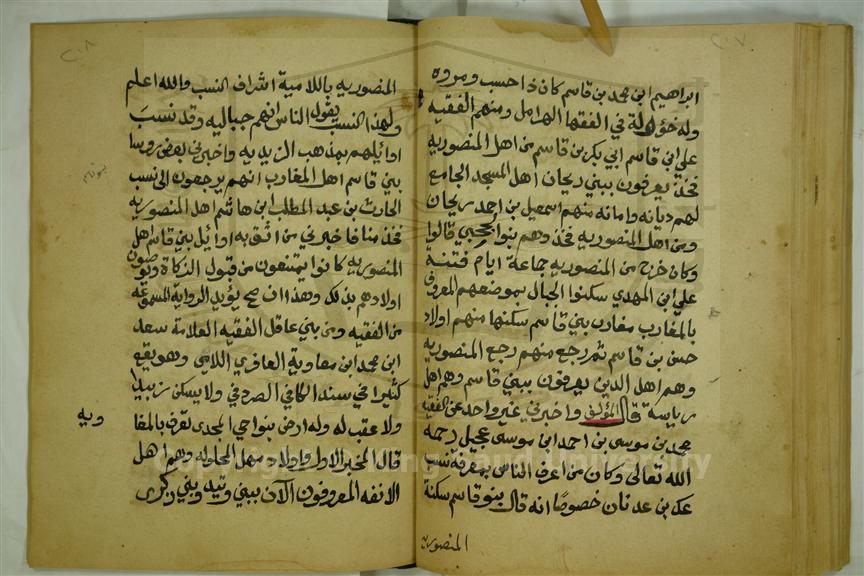 ٢٠٧
ابراهيم ابن محمد بن قاسم كان ذا حسب ومروه
وله خؤلة في الفقها الهرامل ومنهم الفقيه
علي ابن قاسم ابي بكر بن قاسم من اهل المنصوريه
فخذ يعرفون ببني ريحان اهل المسجد الجامع
لهم ديانه وامانه منهم اسمعيل بن احمد ريحان
ومن اهل المنصوريه فخذ وهم بنوا قالوا
وكان خرج من المنصوريه جماعة ايام فتنة
علي ابن المهدي سكنوا الجبال بموضعهم المعروف
بالمغارب مغارب بني قاسم سكنها منهم اولاد
حسن بن قاسم ثم رجع منهم رجع المنصوريه
وهم اهل الدين يعرفون ببني قاسم وهم اهل
رياسة قال المؤلف واخبرني غير واحد عن الفقيه
محمد بن موسى بن احمد ابن موسى عجيل رحمه
الله تعالى وكان من اعرف الناس بمعرفة نسب
عك بن عدنان خصوصًا انه قال بنو قاسم سكنة
المنصوريه
٢٠٨
المنصوريه باللامية اشراف النسب والله اعلم
ولهذا النسب يقول الناس انهم جباليه وقد نسب
اوائلهم بمذهب الزيديه واخبرني بعض روسا
بني قاسم اهل المغارب انهم يرجعون الى نسب
الحارث بن عبد المطلب ابن هاشم اهل المنصوريه
فخذ منا فاخبرني من اثق به اوائل بني قاسم اهل
المنصوريه كانوا يمتنعون من قبول الزكاة ويوصون
اولادهم بذلك وهذا ان صح يؤيد الرواية المسموعه
من الفقيه ومن بني عاقل الفقيه العلامة سعد
ابن محمد ابن معاوية العافري اللامي وهو يقع
كثيرا في سند الكافي الصردفي ولا يسكن زبيدا
ولا عقب له وله ارض بنواحي المجدى تعرف بالمغا
وبه
قال المخبر الاول واولاد مهل المحلوله وهم اهل
الانفه المعروفون الآن ببني وبني زكرى
Copyright © King Saud University